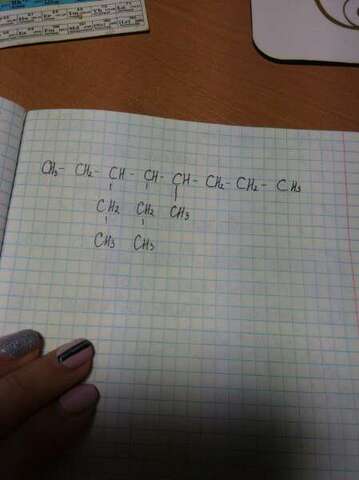 CH3- CH2- CH - CH - CH - CH2 - CH2 - CH3
CH2 CH2 CH3
CH3 CH3